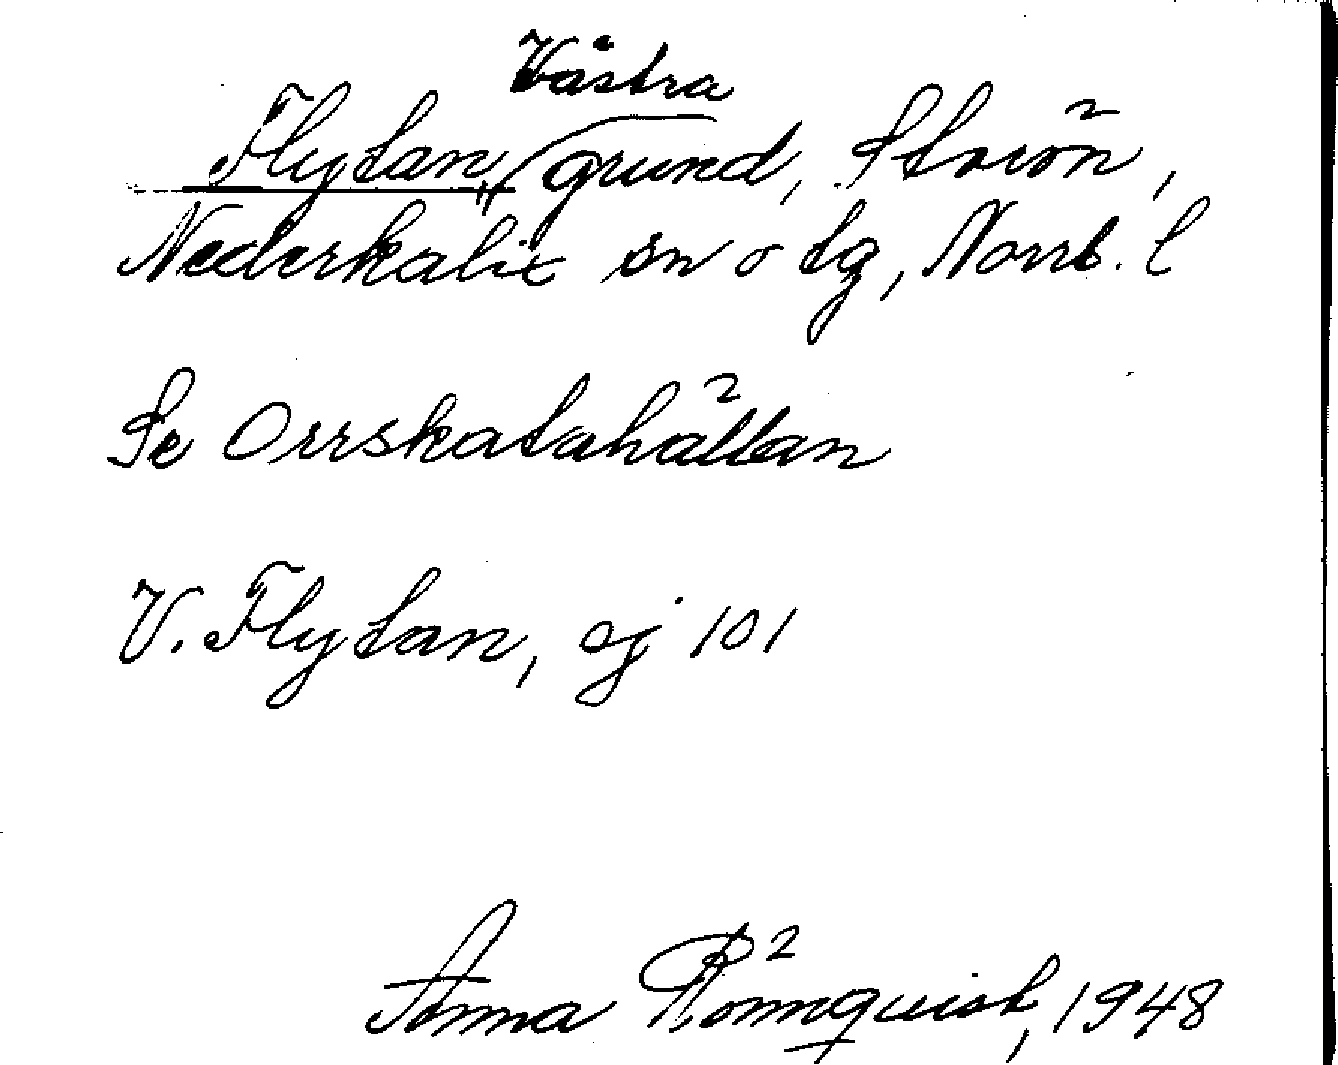 Västra
Flytan, grund, Storön,
Nederkalix sn o tg, Norrb. l
Se Orrskatahällan
V. Flytan, ej 101
Anna Rönnquist, 1948